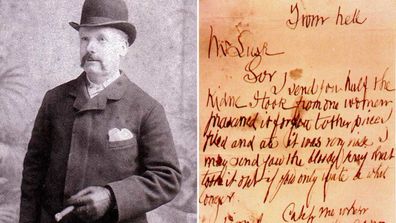 From hell
Mr Lusk
Sor
I send you half the
Kidne I took from one women
prasarved it for you tother piece
fried and ate it was very nise I
may send you the bloody knif that
took it out if you only wate a whil
longer
Catch me when